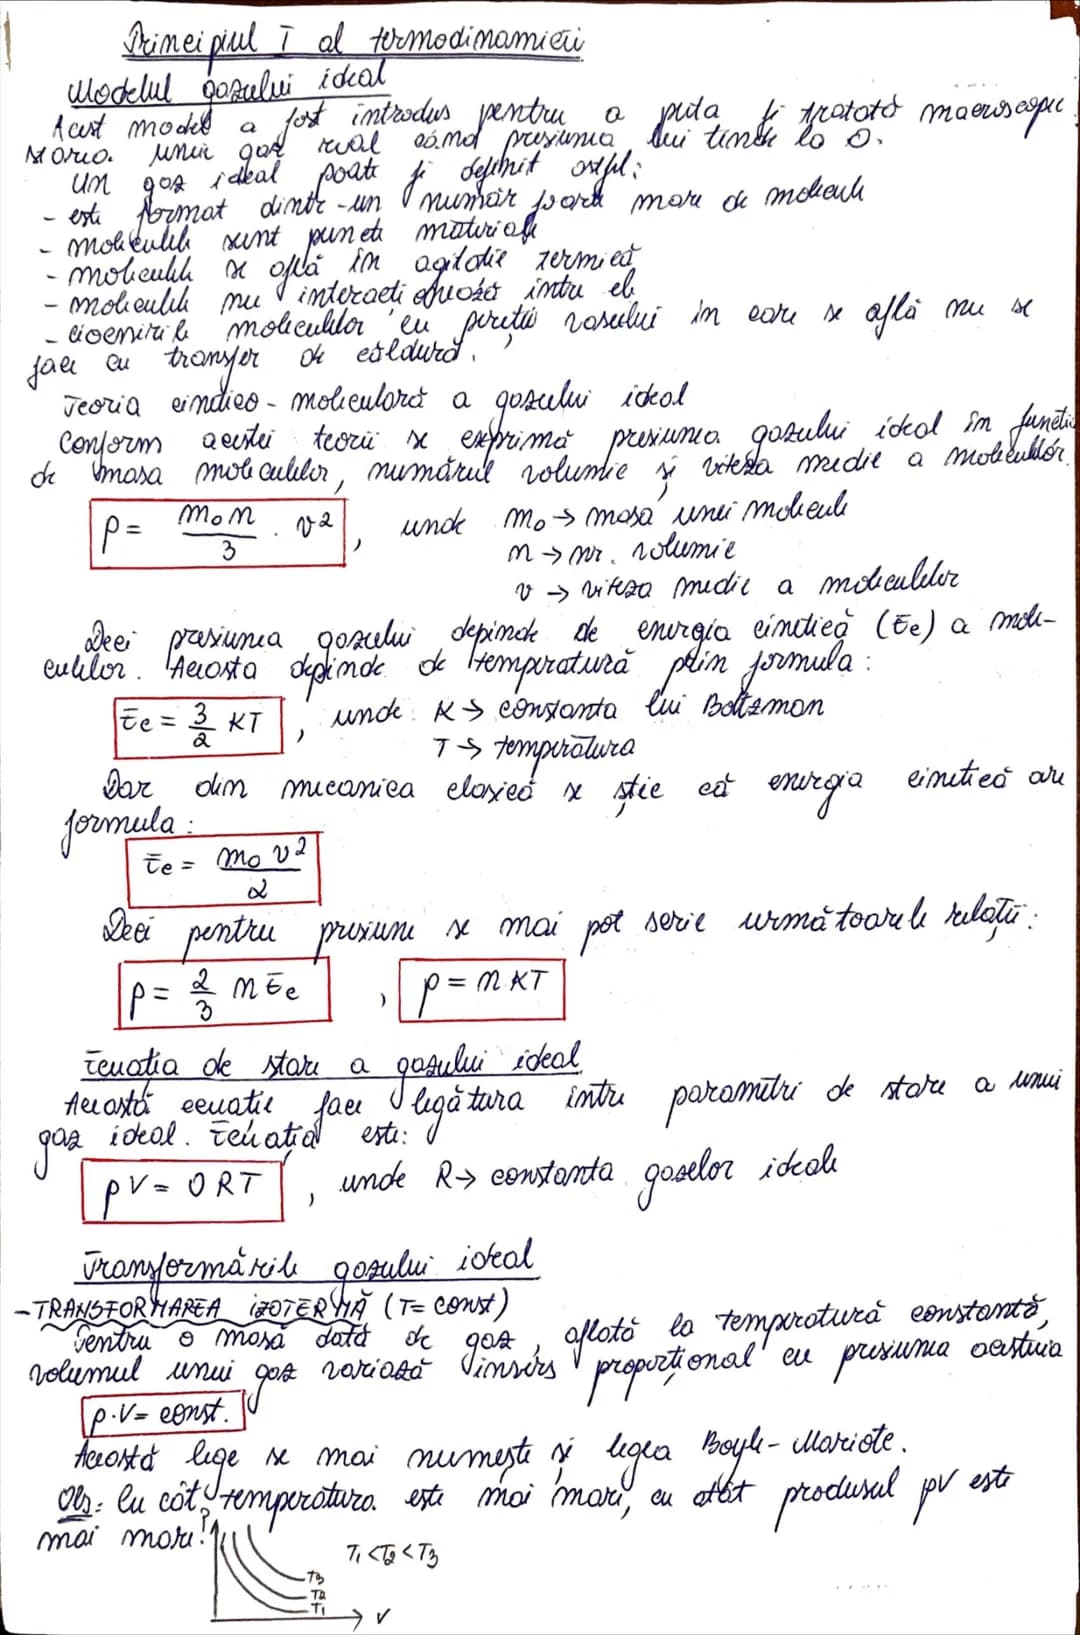 Principiul I al termodinamicii
Modelul gazului ideal
Acest model a fost introdus pentru a putea fi tratată macroscopic
starea unui gaz real când presiunea lui tinde la 0.
Un gaz ideal poate fi definit astfel:
- este format dintr-un număr foarte mare de molecule
- moleculele sunt puncte materiale
- moleculele se află în agitație termică
- moleculele nu interacționează între ele
- ciocnirile moleculelor cu pereții vasului în care se află nu se
face cu transfer de căldură.
Teoria cinetico-moleculară a gazului ideal
Conform acestei teorii se exprimă presiunea gazului ideal în funcție
de masa moleculelor, numărul volumic și viteza medie a moleculelor.
p = m₀n/3 · v², unde m₀ → masa unei molecule
n → nr. volumic
v → viteza medie a moleculelor
Deci presiunea gazului depinde de energia cinetică (Ec) a mole-
culelor. Aceasta depinde de temperatură prin formula:
Ec = 3/2 KT, unde K → constanta lui Boltzman
T → temperatura
Dar din mecanica clasică se știe că energia cinetică are
formula:
Ec = m₀v²/2
Deci pentru presiune se mai pot scrie următoarele relații:
p = 2/3 nEc, p = nKT
Ecuația de stare a gazului ideal
Această ecuație face legătura între parametri de stare a unui
gaz ideal. Ecuația este:
pV = υRT, unde R → constanta gazelor ideale
Transformările gazului ideal
- TRANSFORMAREA IZOTERMĂ (T= const)
Pentru o masă dată de gaz, aflată la temperatură constantă,
volumul unui gaz variază invers proporțional cu presiunea acestuia
p·V= const.
Această lege se mai numește și legea Boyle-Mariote.
Obs: Cu cât temperatura este mai mare, cu atât produsul pV este
mai mare!
p
T₁ <T₂ <T₃
T₃
T₂
T₁
V